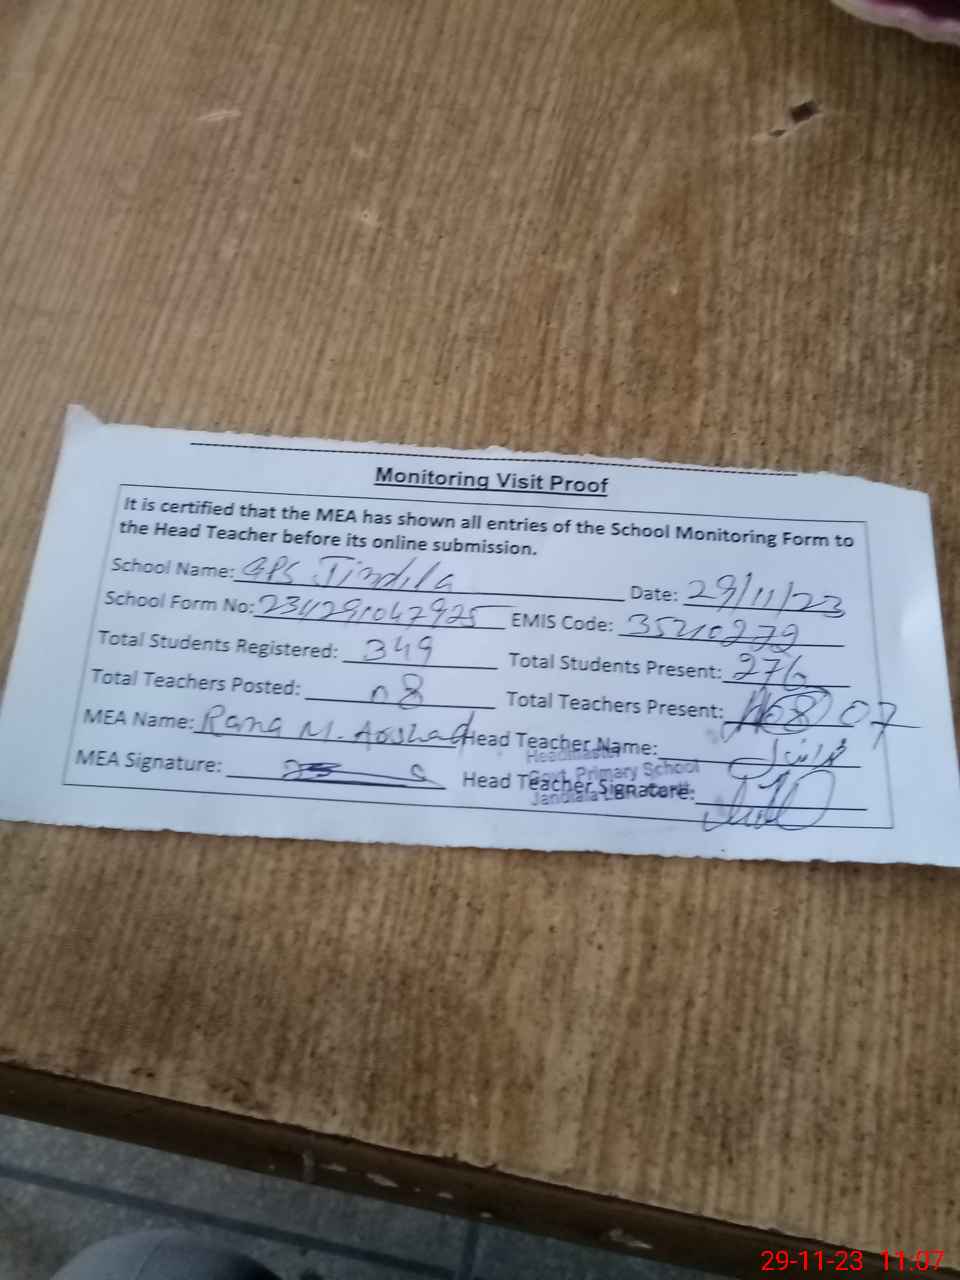 Monitoring Visit Proof
It is certified that the MEA has shown all entries of the School Monitoring Form to
the Head Teacher before its online submission.
School Name: GPS Date: 29/11/23
School Form No: 234291047925 EMIS Code: 35210279
Total Students Registered: 349 Total Students Present: 276
Total Teachers Posted: 08 Total Teachers Present: 07
MEA Name: Rana M. Arshad Head Teacher Name:
Headmaster
MEA Signature: Head Teacher Signature:
Govt. Primary School
29-11-23 11:07